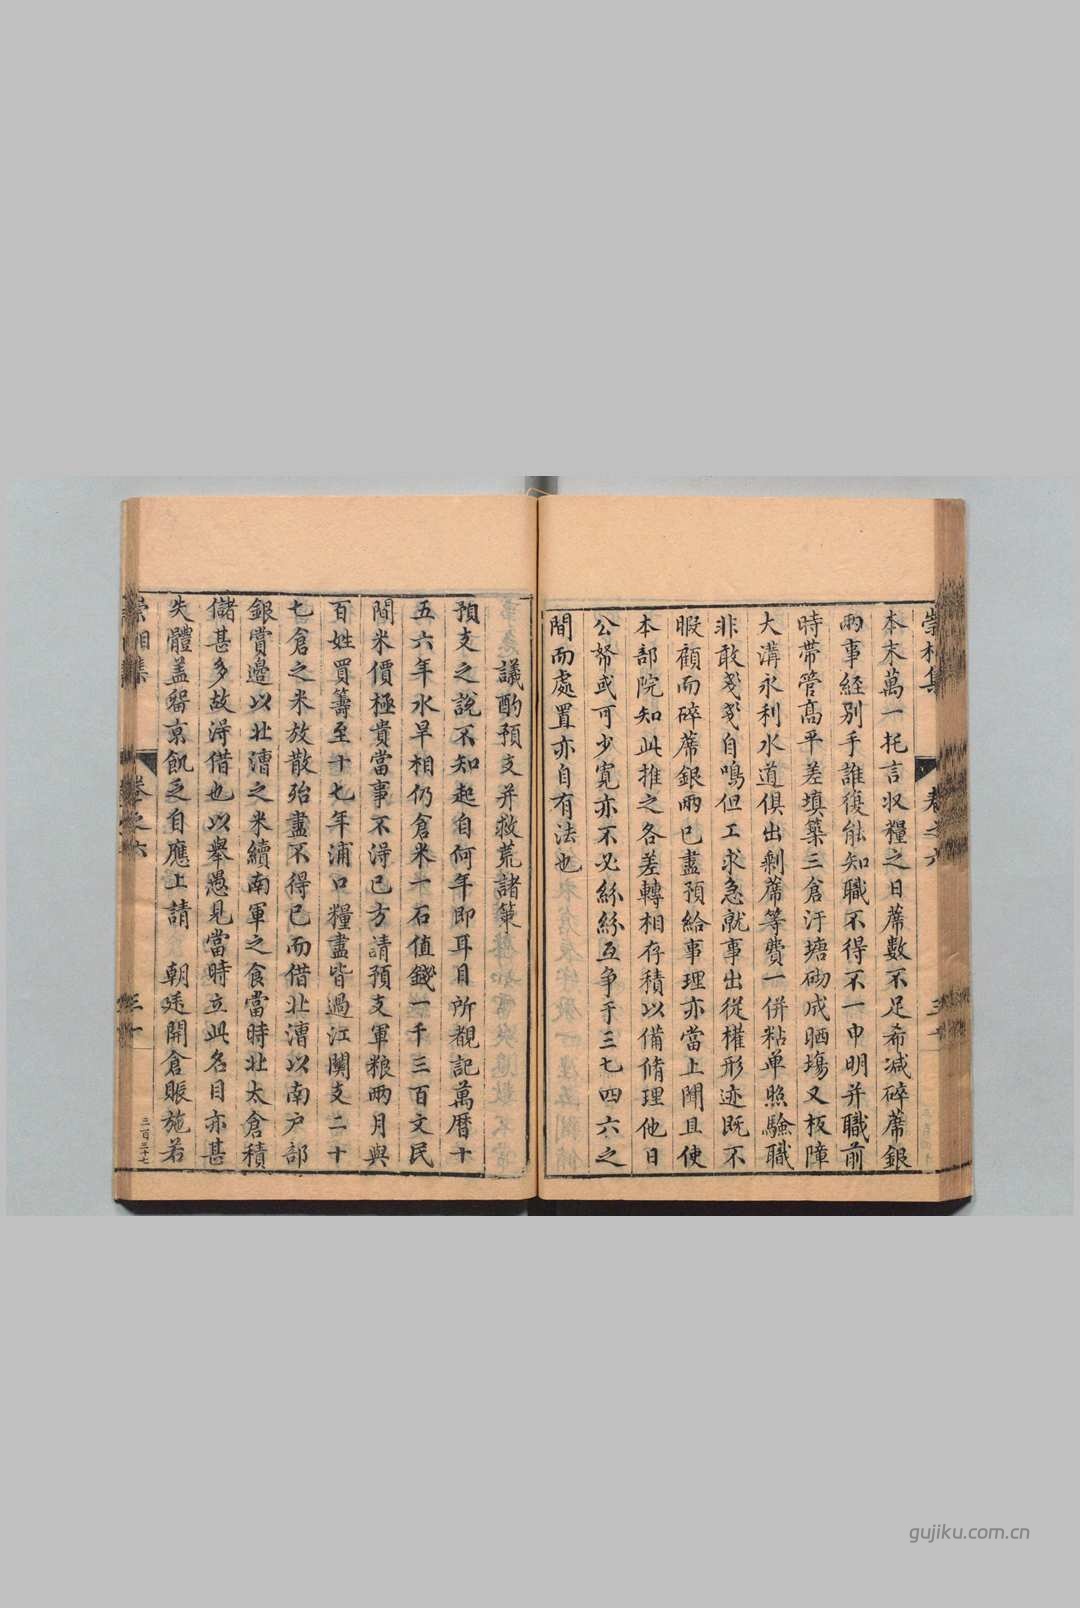 崇相集
卷之六
本末萬一托言収糧之日蓆數不足希减碎蓆銀
兩事経别手誰復能知職不得不一申明并職前
時帯管高平差填築三倉汙塘砌成晒塲又板障
大溝永利水道俱出剩蓆等費一併粘单照驗職
非敢戔戔自鳴但工求急就事出從權形迹既不
暇顧而碎蓆銀兩已盡預給事理亦當上聞且使
本部院知此推之各差轉相存積以備脩理他日
公帑或可少寛亦不必絲絲互争于三七四六之
間而處置亦自有法也
議酌預支并救荒諸策
預支之說不知起自何年即耳目所覩記萬暦十
五六年水旱相仍倉米一石值錢一千三百文民
間米價極貴當事不淂已方請預支軍粮兩月與
百姓買籌至十七年浦口糧盡皆過江関支二十
七倉之米放散殆盡不得已而借北漕以南户部
銀賞邉以北漕之米續南軍之食當時北太倉積
儲甚多故淂借也以舉愚見當時立此名目亦甚
失體盖留京飢乏自應上請　朝廷開倉賑施若
崇相集
卷之六
三百三十七
gujiku.com.cn